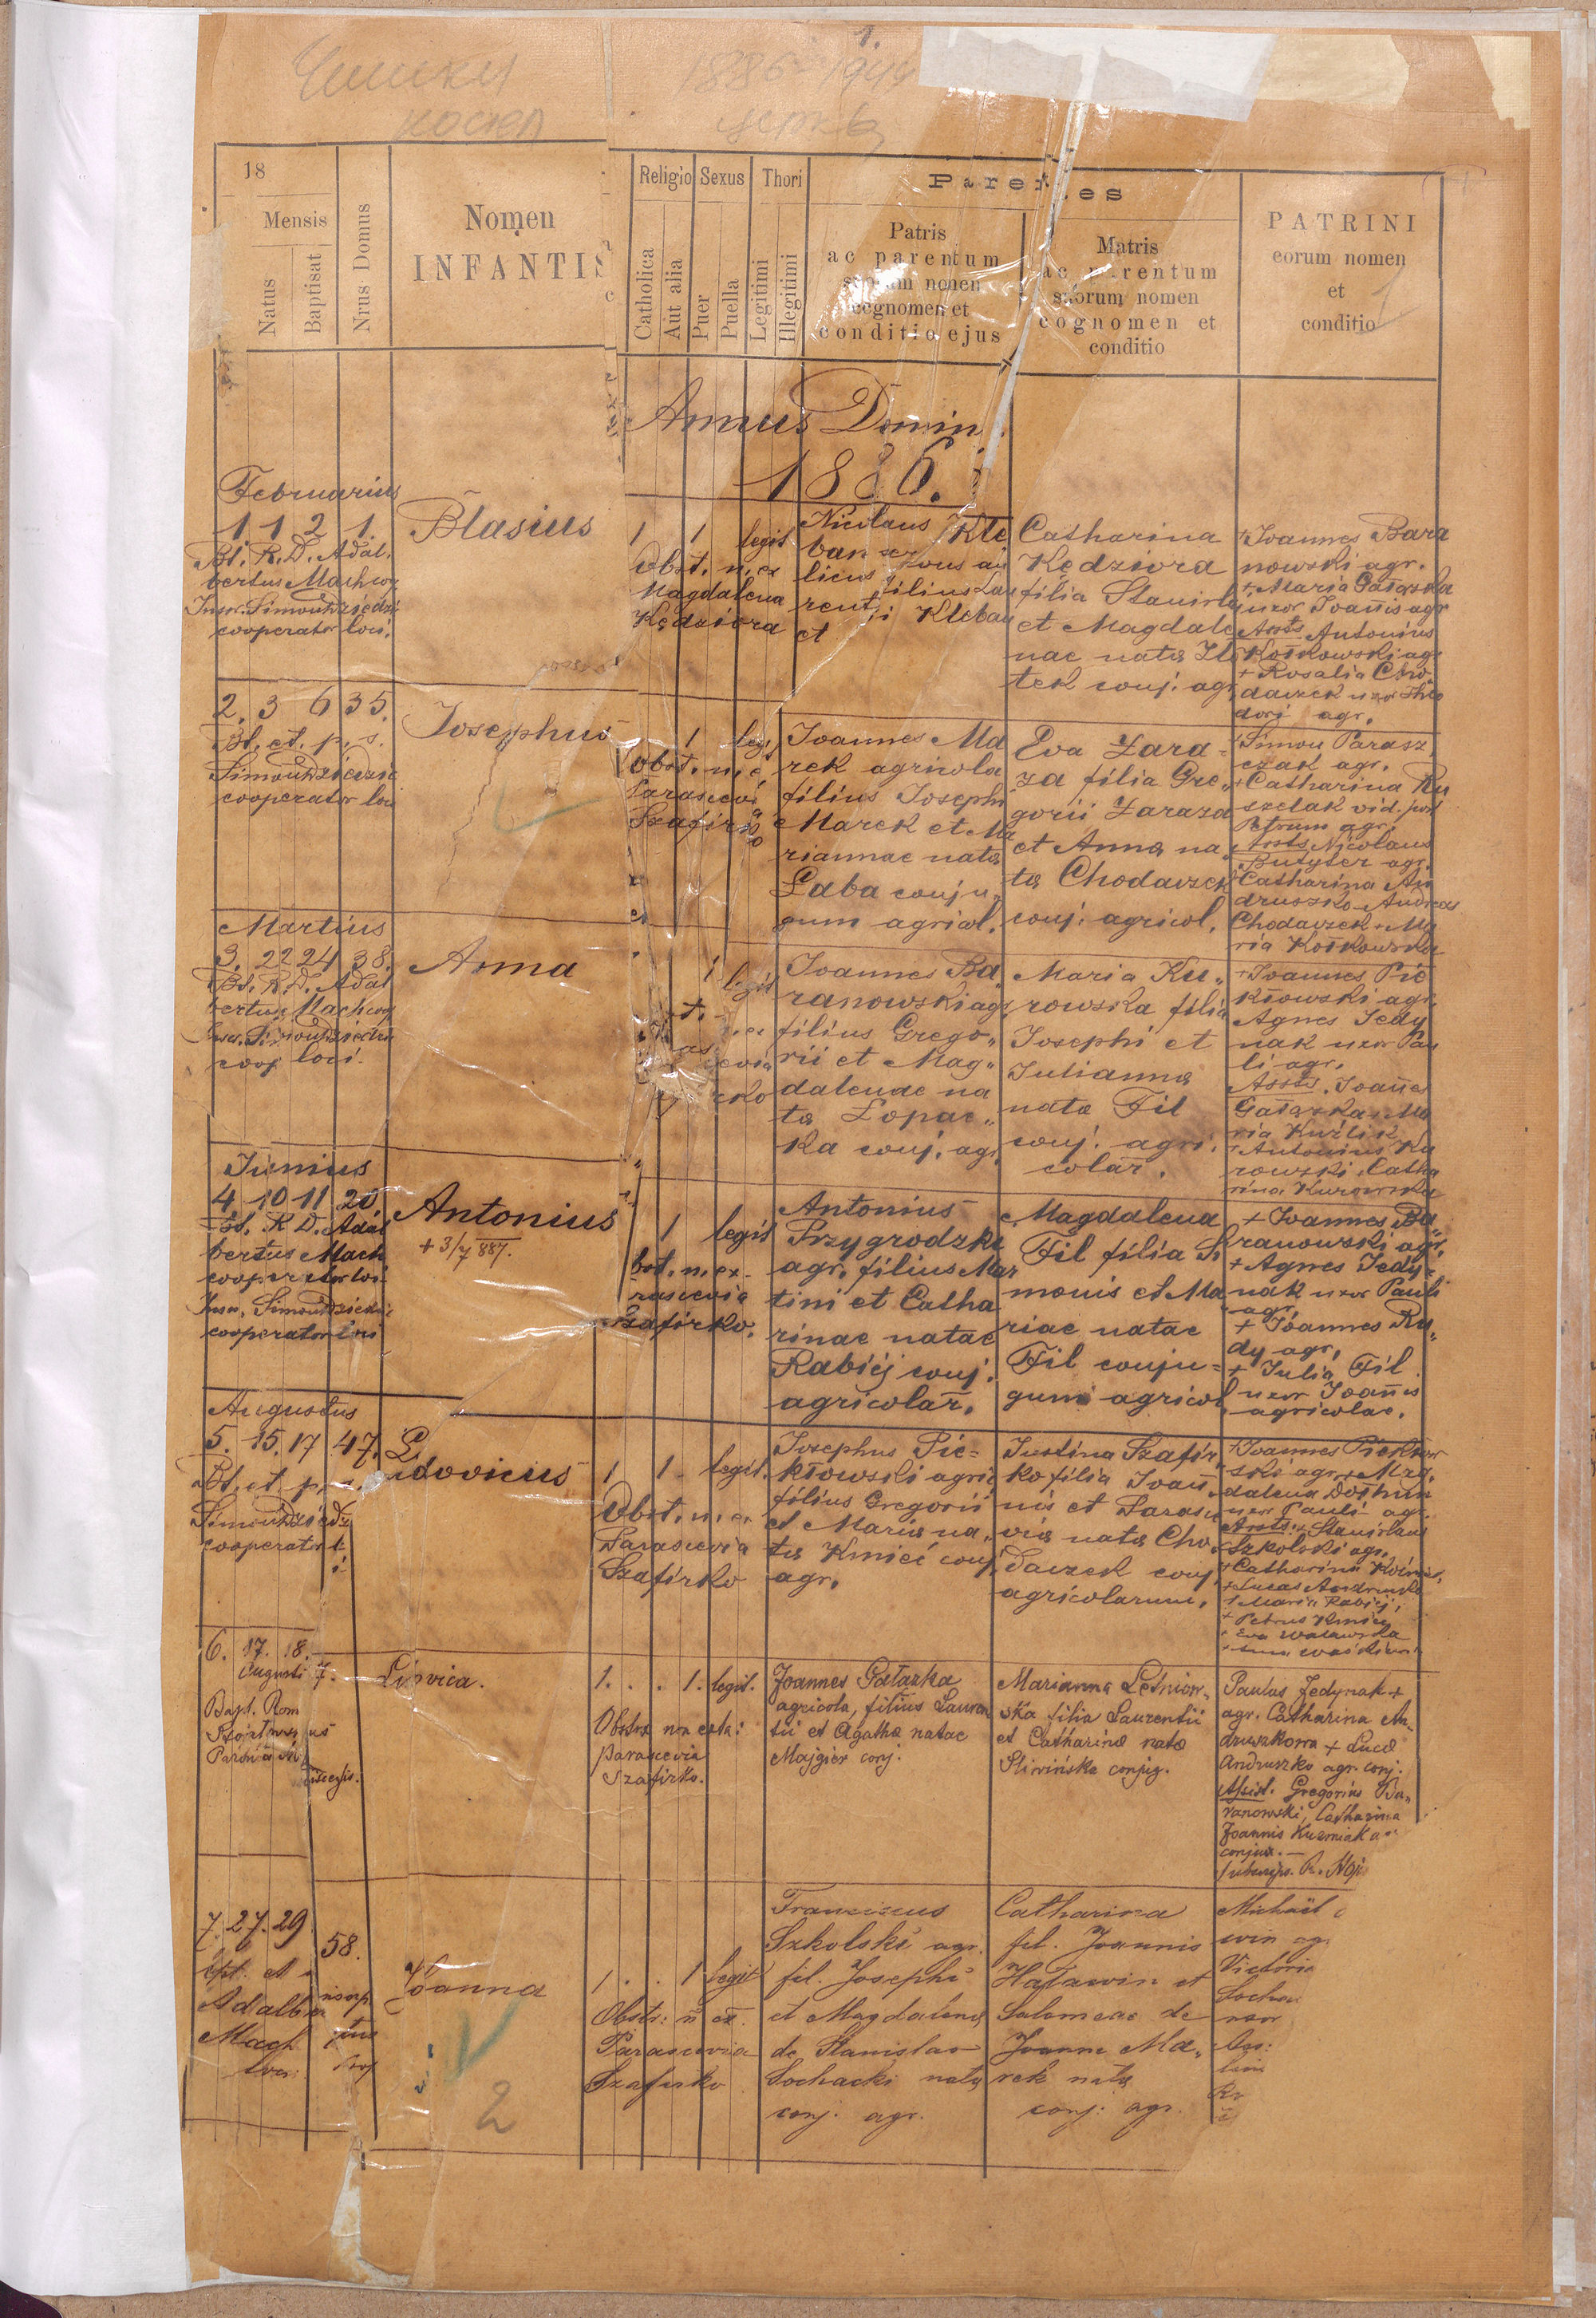 1.
Чишки 1886-1944
косцел
18
Mensis
Natus
Baptisat
Nrus Domus
Nomen
INFANTIS
Religio
Catholica
Aut alia
Sexus
Puer
Puella
Thori
Legitimi
Illegitimi
Parentes
Patris
ac parentum
suorum nomen
cognomen et
conditio ejus
Matris
ac parentum
suorum nomen
cognomen et
conditio
PATRINI
eorum nomen
et
conditio
Annus Domini
1886.
Februarius
1. 1 2 1.
Bt. R. D. Adal.
bertus Machcoy
Inscr. Simon Dziedzic
cooperator loci.
Blasius
1 1 legit
Obst. n. ex
Magdalena
Kędziora
Nicolaus Kle
ban
licus filius Lau
rentii Kleban
et
Catharina
Kędziora
filia Stanislai
et Magdale
nae natæ
tek conj. agr.
+ Joannes Bara
nowski agr.
+ Maria Gałązka
uxor Joañis agr
Assts Antonius
Kotkowski agr
+ Rosalia Cho
daczek uxor Theo
dori agr.
2. 3 6 35.
Bt. et. p. s.
Simon Dziedzic
cooperator loci
Josephus
1 leg.
Obst. n. e
Parascevia
Szafirko
Joannes Ma
rek agricola
filius Josephi
Marek et Ma
riannae natæ
Łaba conju
gum agricol.
Eva Zara-
za filia Gre„
gorii Zaraza
et Annæ na„
tæ Chodaczek
conj. agricol.
+ Simon Parasz
czak agr.
+ Catharina Ru
szelak vid. post
Petrum agr.
Assts Nicolaus
Butyter agr.
Catharina An
druszko Andreas
Chodaczek + Ma
ria Kotkowska
Martius
3. 22 24 38.
Bt. R. D. Adal
bertus Machcoy
Inscr. Simon Dziedzic
coop loci.
Anna
1 legit
Joannes Ba
ranowski agr
filius Grego„
rii et Mag„
dalenae na
tæ Łopac„
ka conj. agr.
Maria Ku„
rowska filia
Josephi et
Juliannæ
natæ Fil
conj. agri.
colar̄.
+ Joannes Pie
kłowski agr.
Agnes Jedy
nak uxor Pau
li agr.
Assts. Joañes
Gałązka + Ma
ria Kuźlik
+ Antonius Ku
rowski, Catha
rina Kurowska
Junius
4. 10 11 20.
Bt. R. D. Adal
bertus Mach.
cooperator loci
Inscr. Simon Dziedzic
cooperator loci
Antonius
+ 3/7 887.
1 legit
bst. n. ex.
rascevia
Szafirko.
Antonius
Przygrodzki
agr. filius Mar
tini et Catha
rinae natae
Rabiej conj.
agricolar̄.
Magdalena
Fil filia Si
monis et Ma
riae natae
Fil conju=
gum agricol.
+ Joannes Ba
ranowski agr.
+ Agnes Jedy„
nak uxor Pauli
agr.
+ Joannes Ru„
dy agr.
+ Julia Fil
uxor Joañis
agricolae.
Augustus
5. 15. 17 47.
Bt. et p. s.
Simon Dziedzic
cooperator
Ludovicus
1 1 legit.
Obst. n. ex
Parascevia
Szafirko
Josephus Pie-
kłowski agric
filius Gregorii
et Mariæ na„
tæ Kmieć conj.
agr.
Justina Szafir
ko filia Joañ„
nis et Parasce
viæ natæ Cho
daczek conj.
agricolarum.
+ Joannes Piekłow
ski agr. + Mag.
dalena
uxor Pauli agr.
Assts: + Stanislaus
Szkolski agr.
+ Catharina
+ Lucas Andruszko
+ Maria Rabiej,
+ Petrus Kmieć
+ Eva
+ Anna
6. 17. 18.
Augusti 7.
Bapt. Rom
Ludvica.
1. . . 1. legit.
Obstrx non exam:
Parascevia
Szafirko.
Joannes Gałązka
agricola, filius Lauren
tii et Agathæ natae
Majgier conj.
Marianna Letniow„
ska filia Laurentii
et Catharinæ natæ
Sliwińska conjug.
Paulus Jedynak +
agr. Catharina An„
druszkowa + Lucæ
Andruszko agr. conj.
Assist. Gregorius Ba„
ranowski, Catharina
Joannis Kuzniak a
conjux. —
7. 27. 29 58.
bpt. et i
Adalber
Mach
loci
Joanna
2
1. . 1 legit
Obstr: n ex.
Parascevia
Szafirko
Franciscus
Szkolski agr.
fil. Josephi
et Magdalenæ
de Stanislao
Sochacki natæ
conj. agr.
Catharina
fil. Joannis
Hatawin et
Salomeae de
Joanne Ma„
rek natæ
conj. agr.
Michaël
win ag
Victoria
Socha
uxor